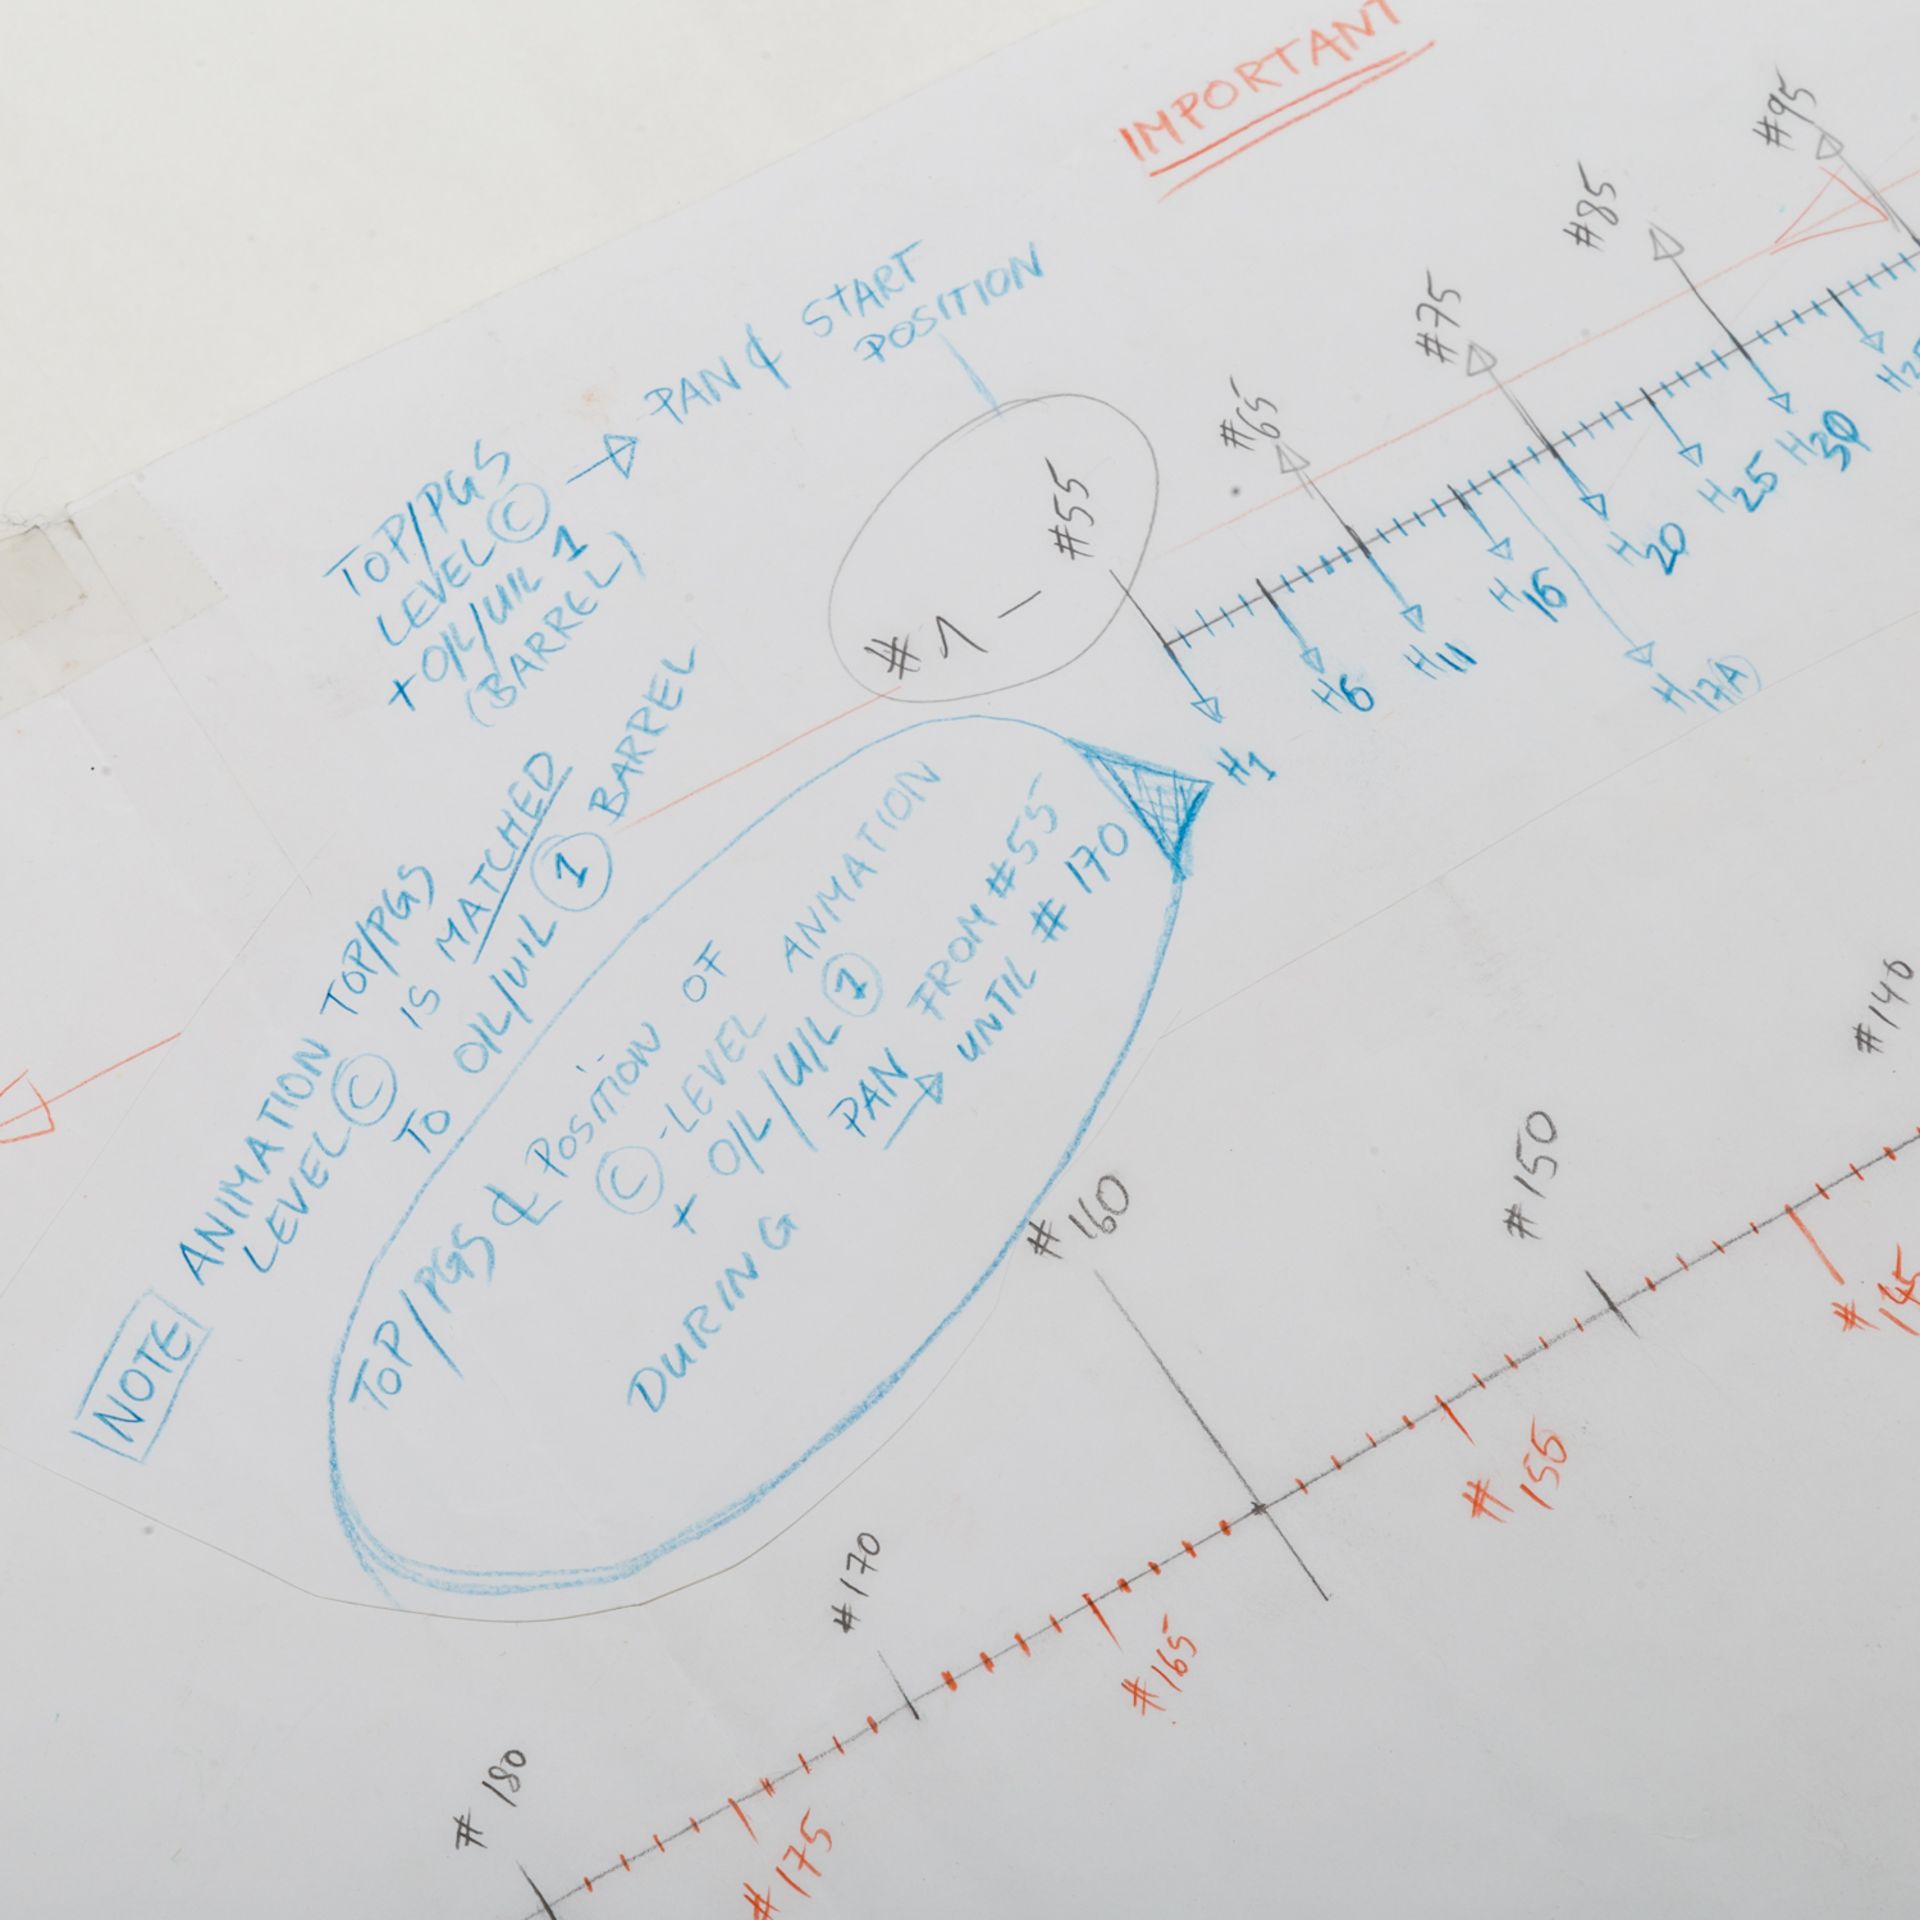 IMPORTANT
TOP/PGS
LEVEL Ⓒ
+ O/L/U/L 1
(BARREL)
PAN ℄ START
POSITION
#1 – #55
#65
#75
#85
#95
H1
H6
H11
H16
H17Ⓐ
H20
H25
H30
NOTE
ANIMATION TOP/PGS
LEVEL Ⓒ IS MATCHED
TO O/L/U/L ① BARREL
TOP/PGS ℄ POSITION OF
Ⓒ-LEVEL ANIMATION
+ O/L/U/L ①
DURING PAN FROM #55
UNTIL #170
#140
#145
#150
#155
#160
#165
#170
#175
#180